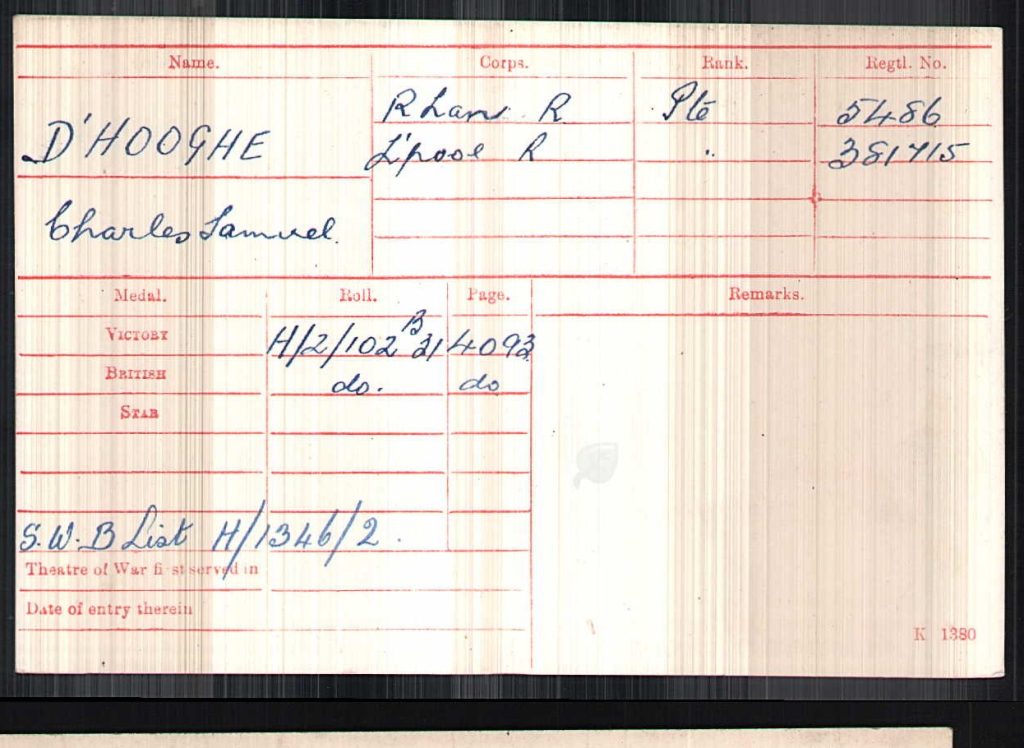 Name. Corps. Rank. Regtl. No.
D'HOOGHE R Lan R Pte 5486
L'pool R " 381715
Charles Samuel.
Medal. Roll. Page. Remarks.
VICTORY H/2/102 B 31 4093
BRITISH do. do
STAR
S.W.B List H/1346/2.
Theatre of War first served in
Date of entry therein
K 1380